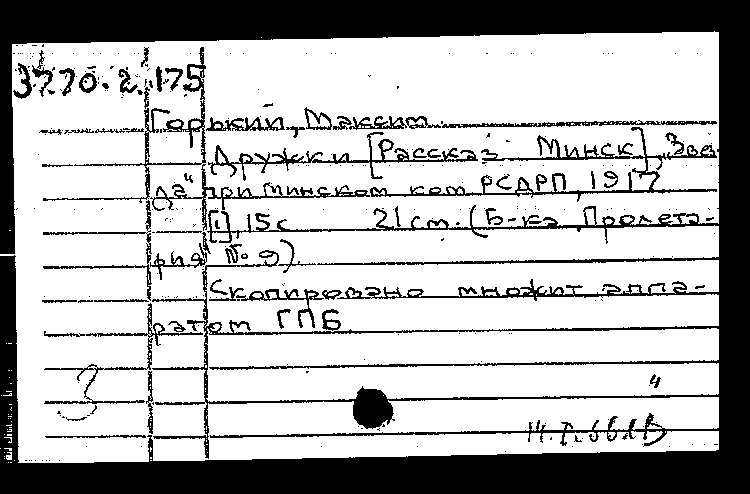 37.70.2.175
Горький, Максим.
Дружки [Рассказ Минск], „Звез-
да" при Минском ком РСДРП, 1917
[1], 15 с 21 см. (Б-ка „Пролета-
рия" № 9)
Скопировано множит аппа-
ратом ГПБ
3